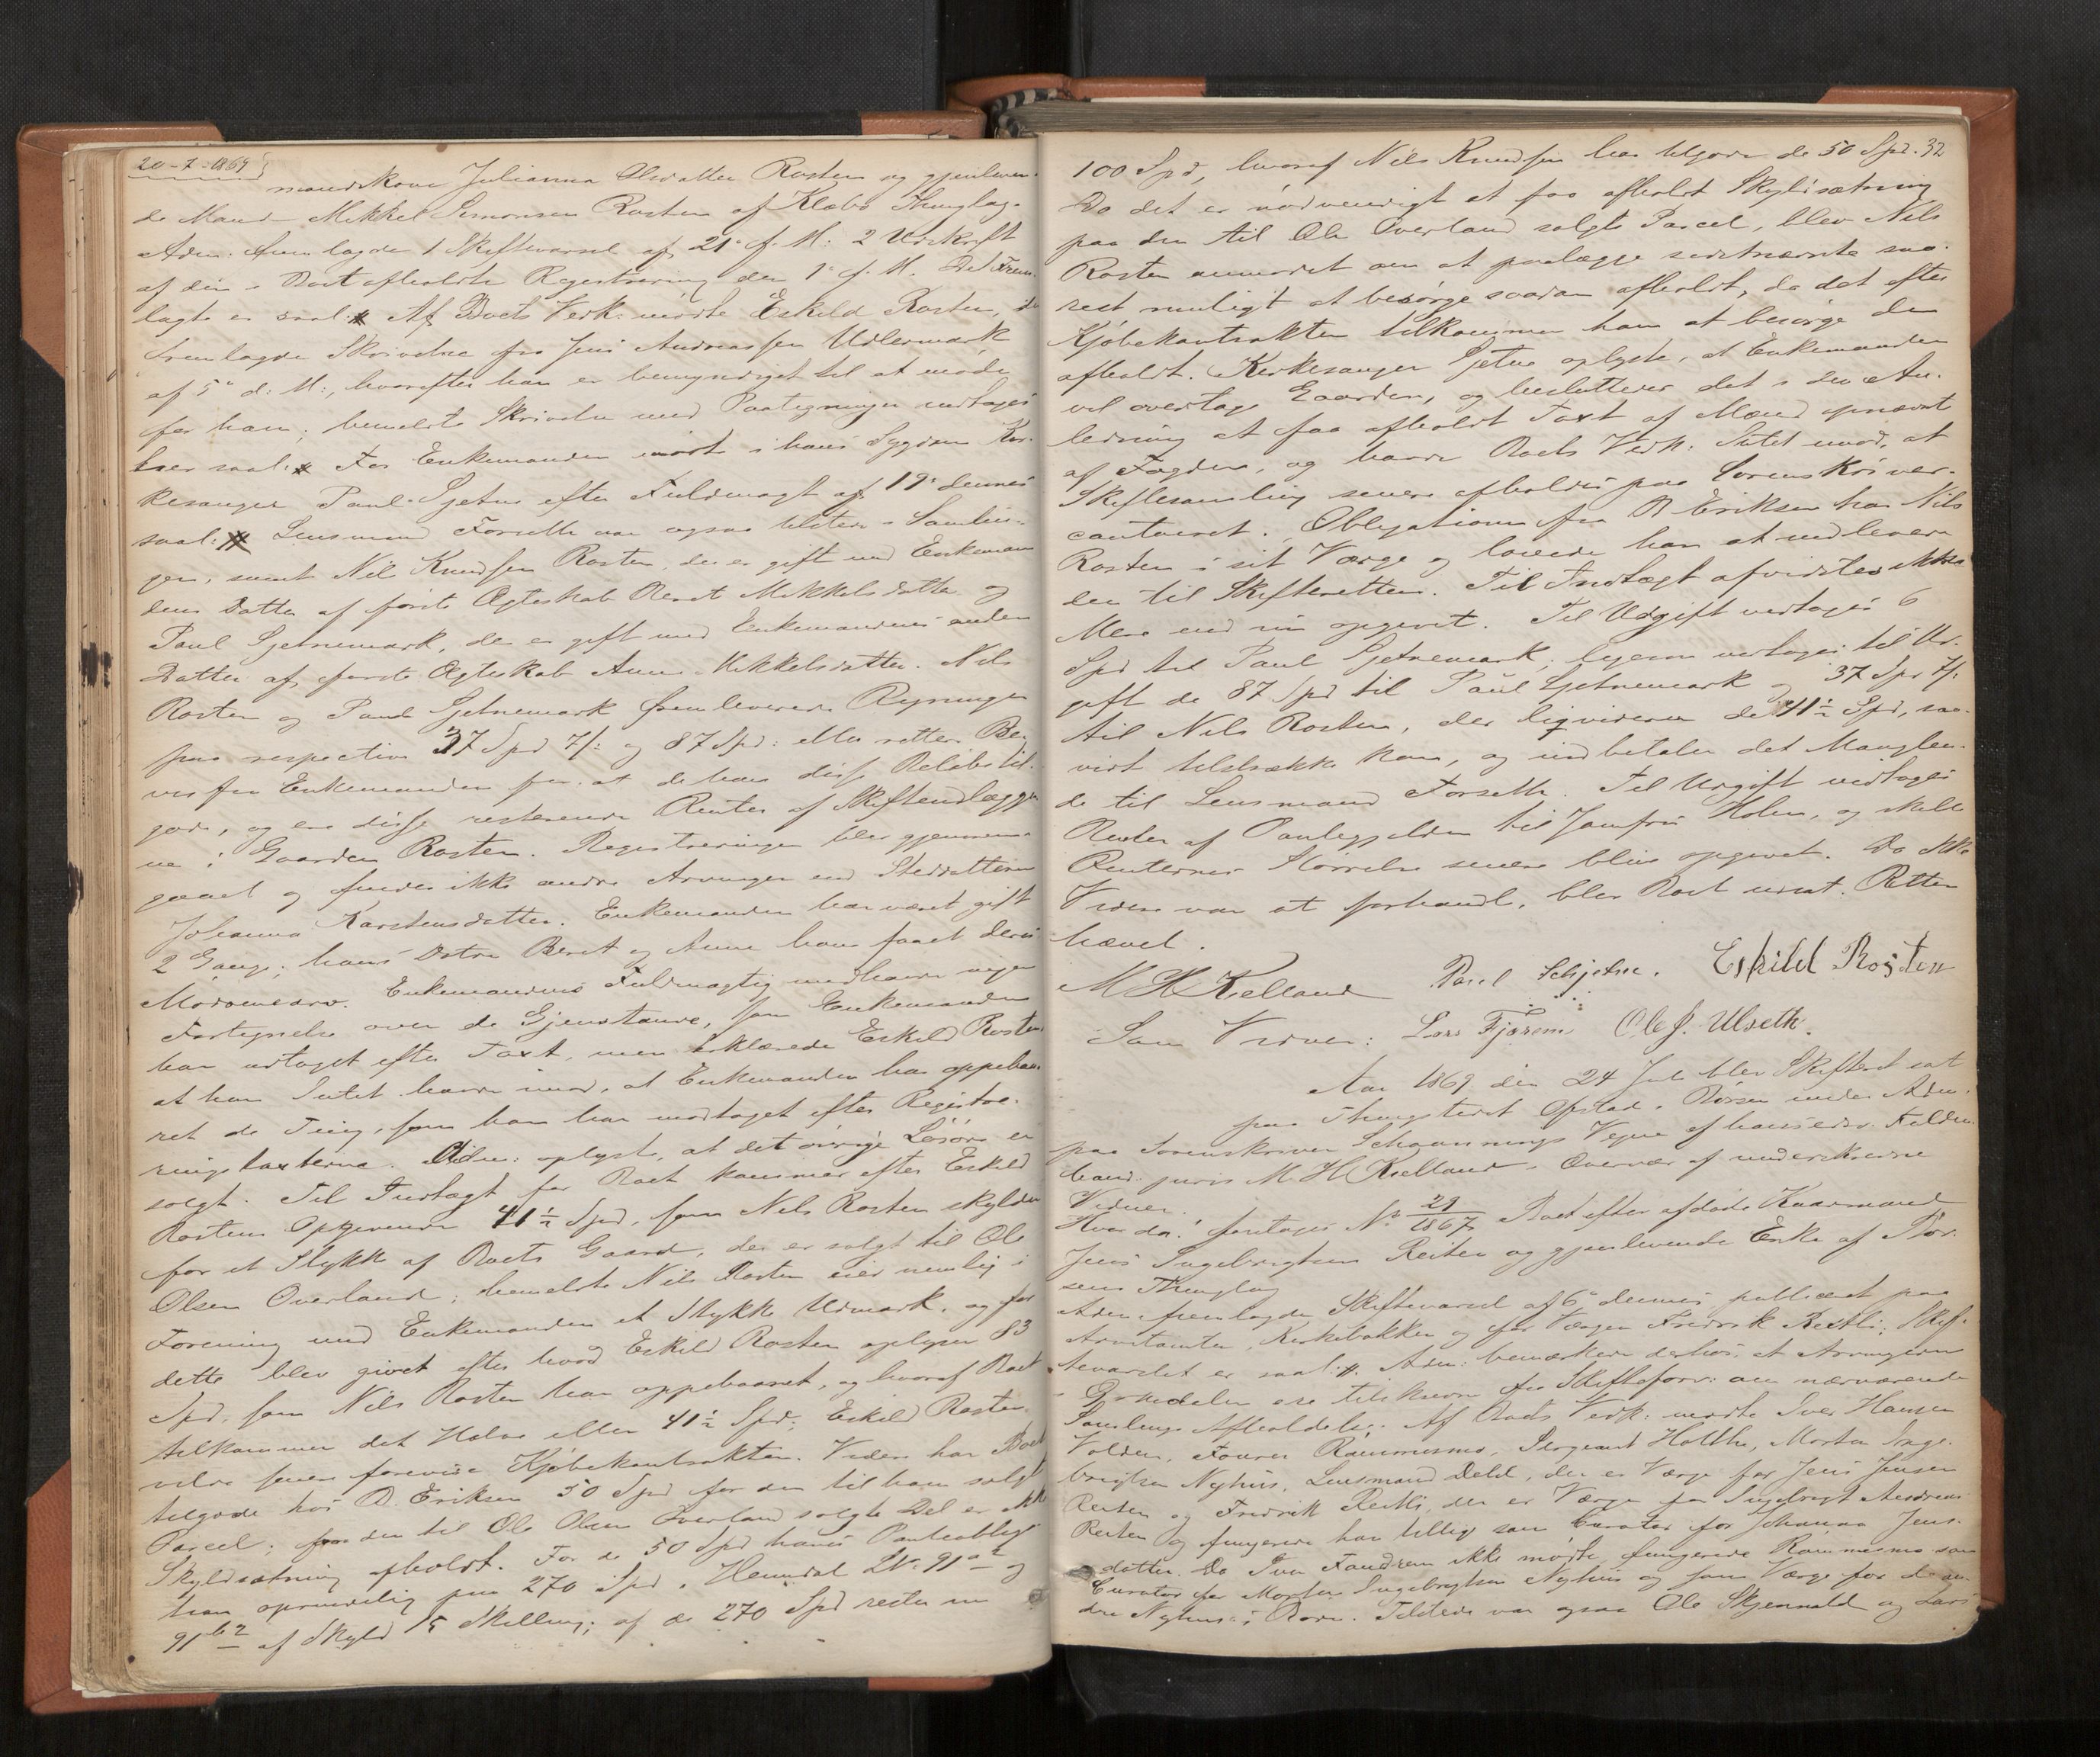 20-7-1869
mandskone Julianna Olsdatter Rosten og gjenleven-
de Mand Mikkel Simonsen Rosten af Klæbo Thinglag.
Adm: fremlagde 1 Skiftevarsel af 21de f. M: 2 Udskrift
af den i Boet afholdte Registrering den 1e f. M. Det frem-
lagte er saal: # Af Boets Vedk: mødte Eskild Rosten, der
fremlagde Skrivelse fra Jens Andreassen Udlermark
af 5te d: M:, hvorefter han er bemyndiget til at møde
for ham; bemeldte Skrivelse med Paategninger vedtages
saal: # For Enkemanden mødte i hans Sygdom Kir-
kesanger Paul Gjetne efter Fuldmagt af 19de dennes
saal: # Lensmand Forseth var ogsaa tilstede i Samlin-
gen, samt Nils Knudsen Rosten, der er gift med Enkeman-
dens Datter af første Ægteskab Beret Mikkelsdatter og
Paul Gjetnemark, der er gift med Enkemandens anden
Datter af første Ægteskab Anne Mikkelsdatter. Nils
Rosten og Paul Gjetnemark fremleverede Regninger
paa respective 37 Spd 7/: og 87 Spd: eller rettere Be-
vis fra Enkemanden for at de have disse Beløbe til-
gode, og ere disse resterende Renter af Skifteudlægge-
ne i Gaarden Rosten. Registreringen blev gjennem-
gaaet og findes ikke andre Arvinger end Steddatteren
Johanna Karstensdatter. Enkemanden har været gift
2 Gange; hans Døtre Beret og Anne have faaet deres
Mødrenearv. Enkemandens Fuldmægtig medhavde ingen
Fortegnelse over de Gjenstande, som Enkemanden
har udtaget efter Taxt, men erklærede Eskild Rosten
at han Intet havde imod, at Enkemanden har oppebaa-
ret de Ting, som han har modtaget efter Registre-
ringstaxterne. Adm: oplyste, at det øvrige Løsøre er
solgt. Til Indtægt for Boet kommer efter Eskild
Rostens Opgivende 41½ Spd, som Nils Rosten skylder
for et Stykke af Boets Gaard, der er solgt til Ole
Olsen Overland; bemeldte Nils Rosten eier nemlig i
Forening med Enkemanden et Stykke Udmark, og for
dette blev givet efter hvad Eskild Rosten oplyser 83
Spd, som Nils Rosten har oppebaaret, og hvoraf Boet
tilkommer det Halve eller 41½ Spd; Eskild Rosten
vilde senere forevise Kjøbekontrakten. Videre har Boet
tilgode hos B. Eriksen 50 Spd for den til ham solgte
Parcel; for den til Ole Olsen Overland solgte Del er ikke
Skyldsætning afholdt. For de 50 Spd haves Panteobliga
tion oprindelig paa 270 Spd i Heimdal LN: 91a2 og
91b2 af Skyld 15 Skilling; af de 270 Spd rester nu
32
100 Spd, hvoraf Nils Knudsen har tilgode de 50 Spd.
Da det er nødvendigt at faa afholdt Skyldsætning
paa den til Ole Overland solgte Parcel, blev Nils
Rosten anmodet om at paalægge sidstnævnte saa-
vidt muligt at besørge saadan afholdt, da det efter
Kjøbekontrakten tilkommer ham at besørge den
afholdt. Kirkesanger Gjetne oplyste, at Enkemanden
vil overtage Gaarden, og besluttedes det i den An-
ledning at faa afholdt Taxt af Mænd opnævnt
af Fogden, og havde Boets Vedk: Intet imod, at
Skiftesamling senere afholdes paa Sorenskriver-
contoiret. Obligationen fra B Eriksen har Nils
Rosten i sit Værge og lovede han at indlevere
den til Skifteretten. Til Indtægt afvidstes ikke
Mere end nu opgivet. Til Udgift vedtages 6
Spd til Paul Gjetnemark; ligesom vedtages til Ud-
gift de 87 Spd til Paul Gjetnemark og 37 Spd 7/:
til Nils Rosten, der liqviderer de 41½ Spd, saa-
vidt tilstrække kan, og indbetaler det Manglen-
de til Lensmand Forseth. Til Udgift vedtages
Renter af Pantegjelden til Jomfru Holm, og skulle
Renternes Størrelse senere blive opgivet. Da Ikke
Videre var at forhandle, blev Boet udsat. Retten
hævet.
M H Kielland Paul Schjetne. Eskild Rosten
Som Vidner: Lars Fjærem Ole J. Ulseth.
Aar 1869 den 24 Juli blev Skifteret sat
paa Thingstedet Opstad i Børsen under Adm:
paa Sorenskriver Schwennings Vegne af hans edsv. Fuldm.
cand. juris M. H. Kielland i Overvær af underskrevne
Vidner.
Hvor da: foretages No 29/1867 Boet efter afdøde Kaarmand
Jens Ingebrigtsen Reiten og gjenlevende Enke af Bør-
sens Thinglag
Adm fremlagde Skiftevarsel af 6te dennes publiceret paa
Arvetomten, Kirkebakken og for Værgen Fredrik Reitli; Skif-
tevarslet er saal: #. Adm: bemærkede derhos, at Arvingerne
i Orkedalen ere tilskrevne fra Skifteforv: om nærværende
Samlings Afholdelse. Af Boets Vedk: mødte Iver Hansen
Volden, Fourer Rommesmo, Sergeant Holthe, Morten Inge-
brigtsen Nyhus, Lensmand Dahl, der er Værge for Jens Jensen
Reiten og Fredrik Reitli, der er Værge for Ingebrigt Andreas
Reiten og fungerede han tillige som Curator for Johanna Jens-
datter. Da Iver Fandrem ikke mødte fungerede Rommesmo som
Curator for Morten Ingebrigtsen Nyhus og som Værge for de an-
dre Nyhus's Børn. Tilstede var ogsaa Ole Skjenald og Lars